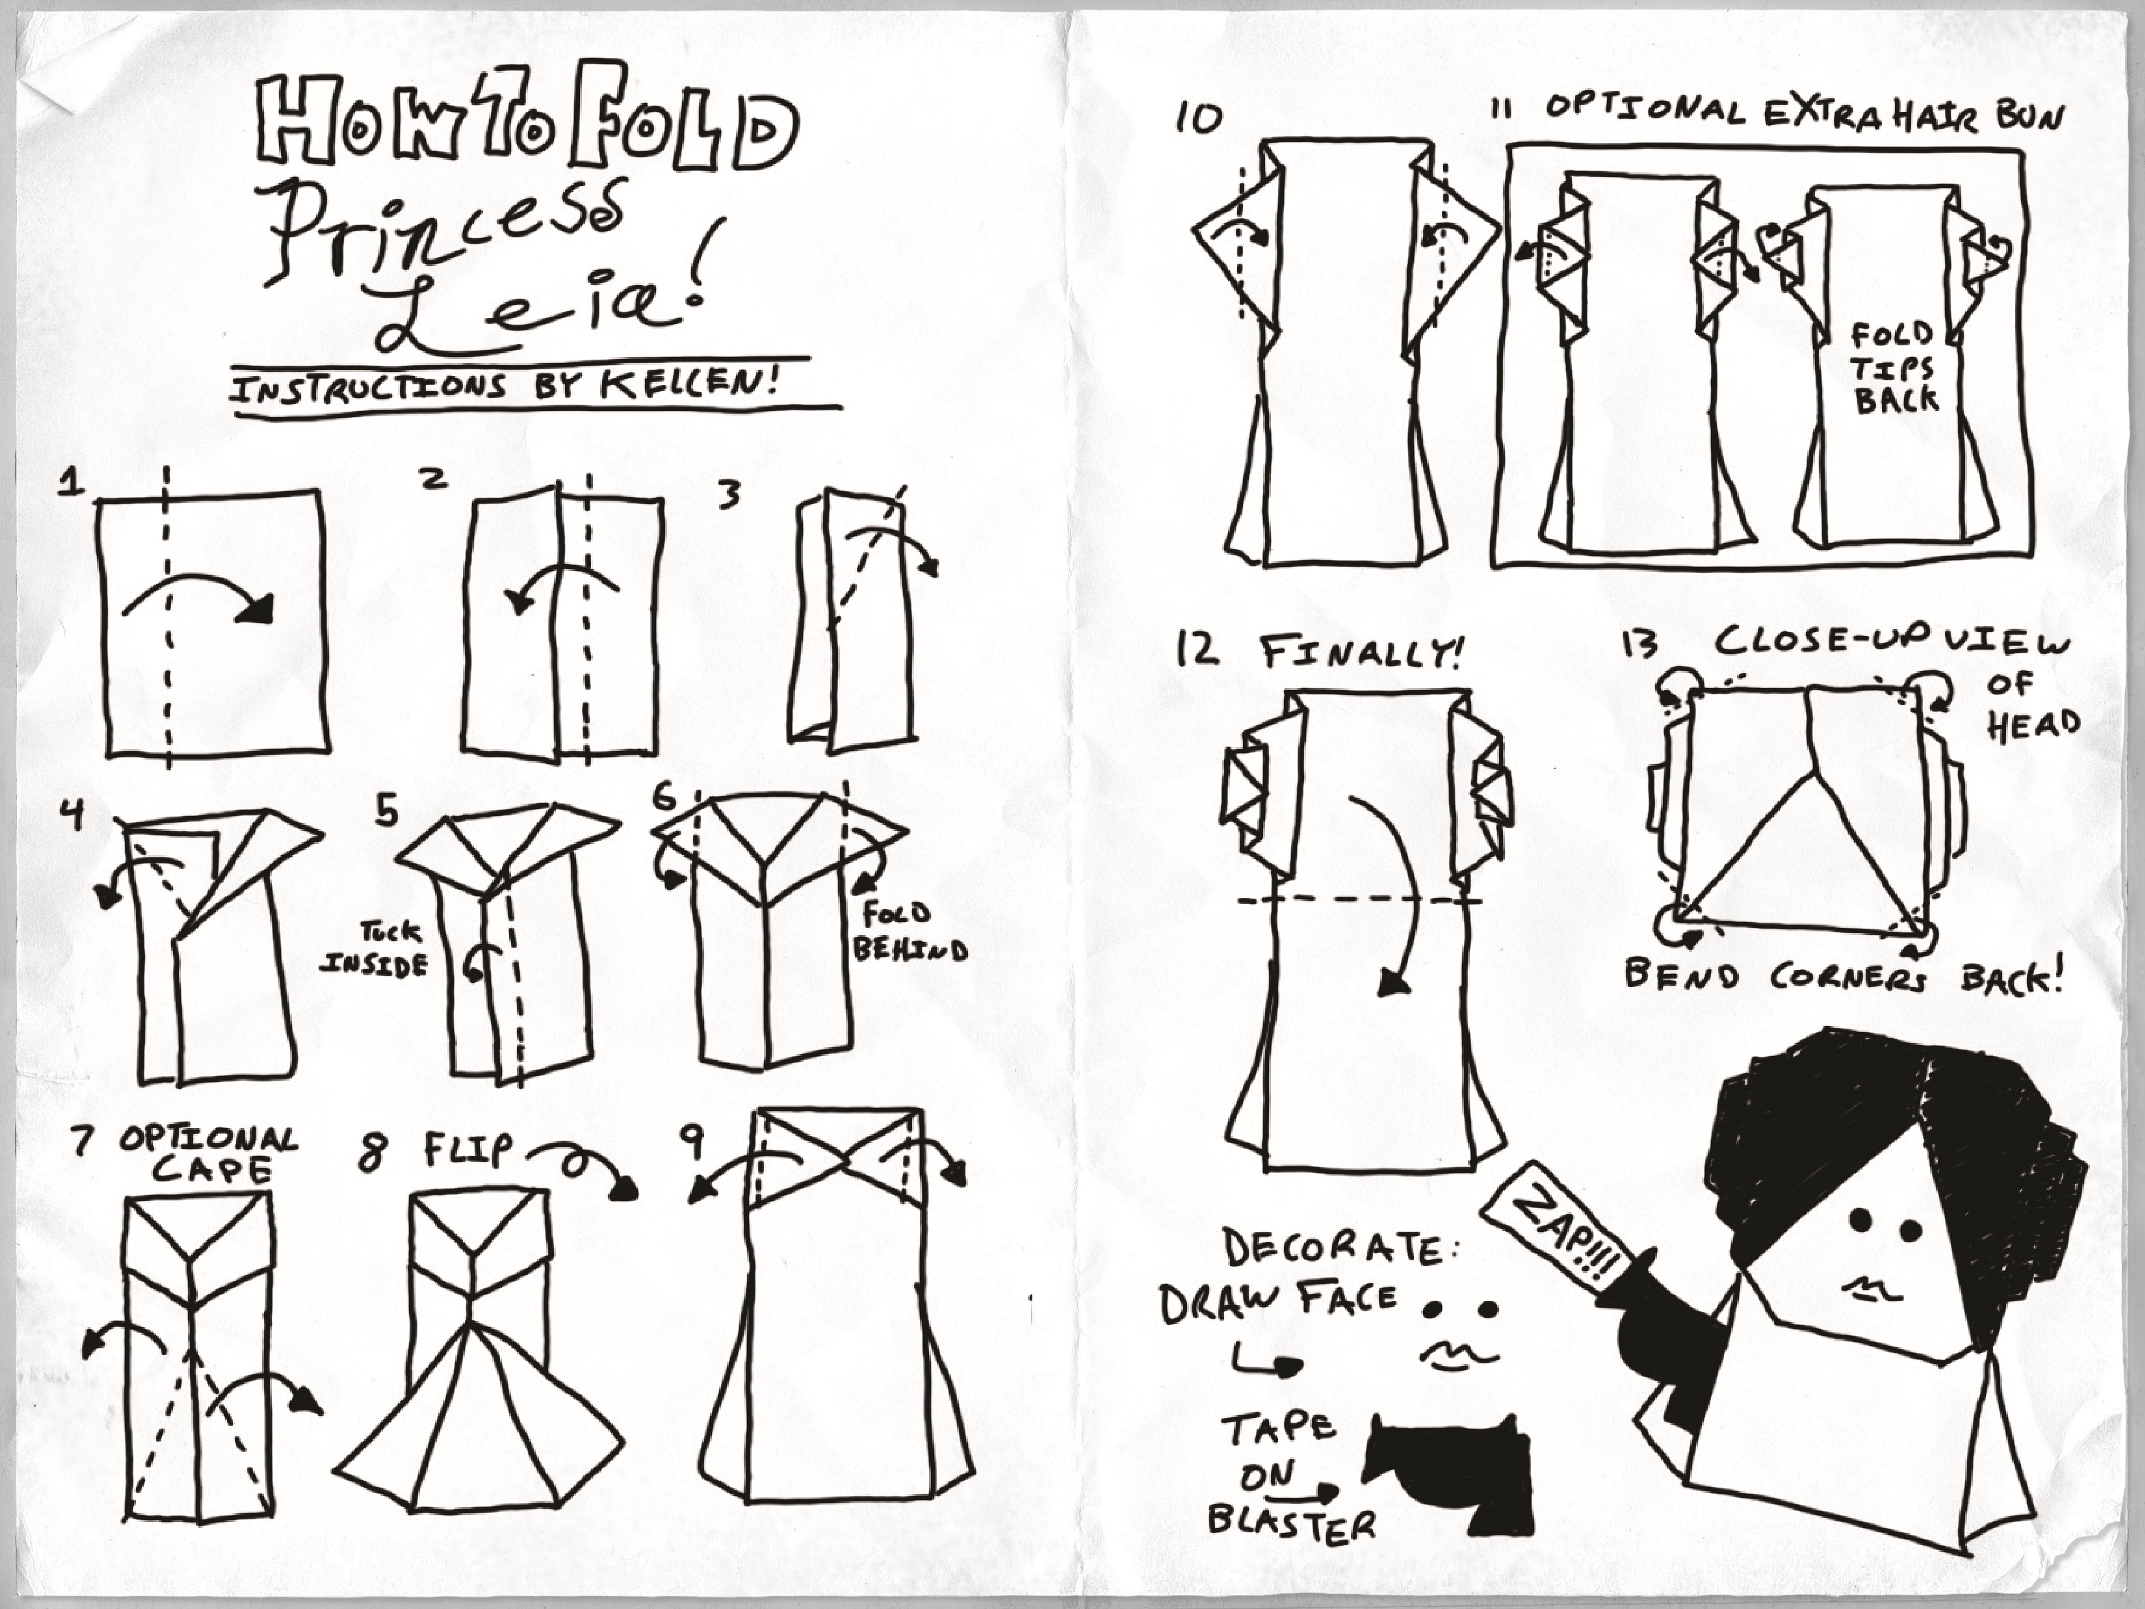 HOW TO FOLD
Princess
Leia!
INSTRUCTIONS BY KELLEN!
1
2
3
4
5
TUCK
INSIDE
6
FOLD
BEHIND
7 OPTIONAL
CAPE
8 FLIP
9
10
11 OPTIONAL EXTRA HAIR BUN
FOLD
TIPS
BACK
12 FINALLY!
13 CLOSE-UP VIEW
OF
HEAD
BEND CORNERS BACK!
ZAP!!!
DECORATE:
DRAW FACE
TAPE
ON
BLASTER